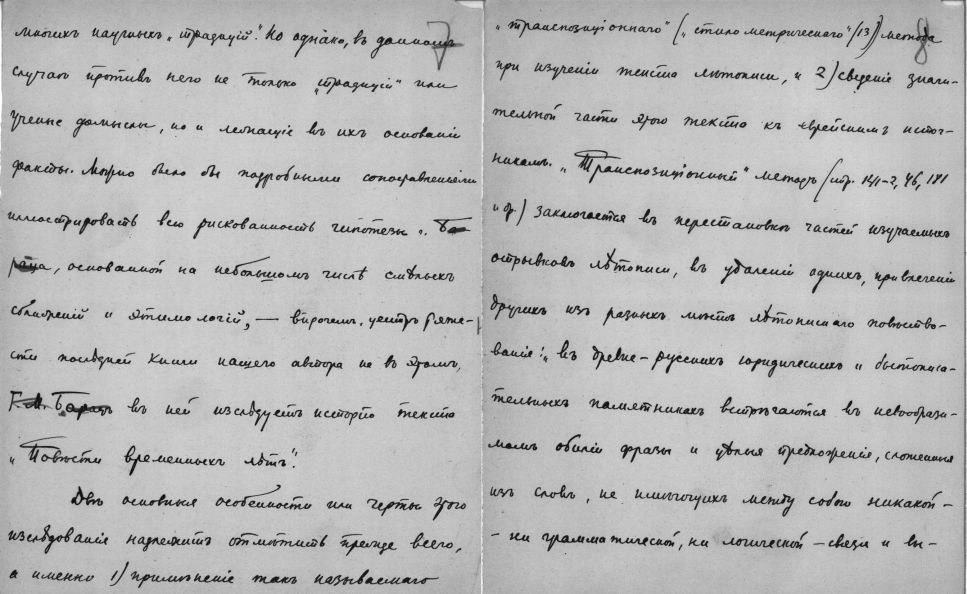 7
многихъ научныхъ „традицій“. Но однако, въ данномъ
случаѣ противъ него не только „традиціи“ или
ученые домыслы, но и лежащіе въ ихъ основаніи
факты. Можно было бы подробными сопоставленіями
иллюстрировать всю рискованность гипотезы г. Ба-
раца, основанной на небольшомъ числѣ смѣлыхъ
сближеній и этимологій, — впрочемъ, центръ тяже-
сти послѣдней книги нашего автора не въ этомъ,
Г. М. Барацъ въ ней изслѣдуетъ исторію текста
„Повѣсти временныхъ лѣтъ“.
Двѣ основныя особенности или черты этого
изслѣдованія надлежитъ отмѣтить прежде всего,
а именно 1) примѣненіе такъ называемаго
8
„транспозиціоннаго“ („стило метрическаго“ /13) метода
при изученіи текста лѣтописи, и 2) сведеніе значи-
тельной части этого текста къ еврейскимъ источ-
никамъ. „Транспозиціонный“ методъ (стр. 141-2, 46, 181
и др.) заключается въ перестановкѣ частей изучаемыхъ
отрывковъ лѣтописи, въ удаленіи однихъ, привлеченіи
другихъ изъ разныхъ мѣстъ лѣтописнаго повѣство-
ванія: „въ древне-русскихъ юридическихъ и бытописа-
тельныхъ памятникахъ встрѣчаются въ невообрази-
момъ обиліи фразы и цѣлыя предложенія, сложенныя
изъ словъ, не имѣющихъ между собою никакой-
- ни грамматической, ни логической - связи и вы-